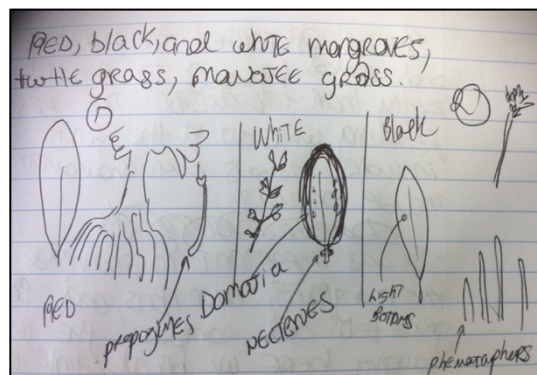 RED, black, and white mangroves,
turtle grass, manatee grass.
1
White
Black
2
RED
propogules
Domatia
Nectaries
Light
Bottoms